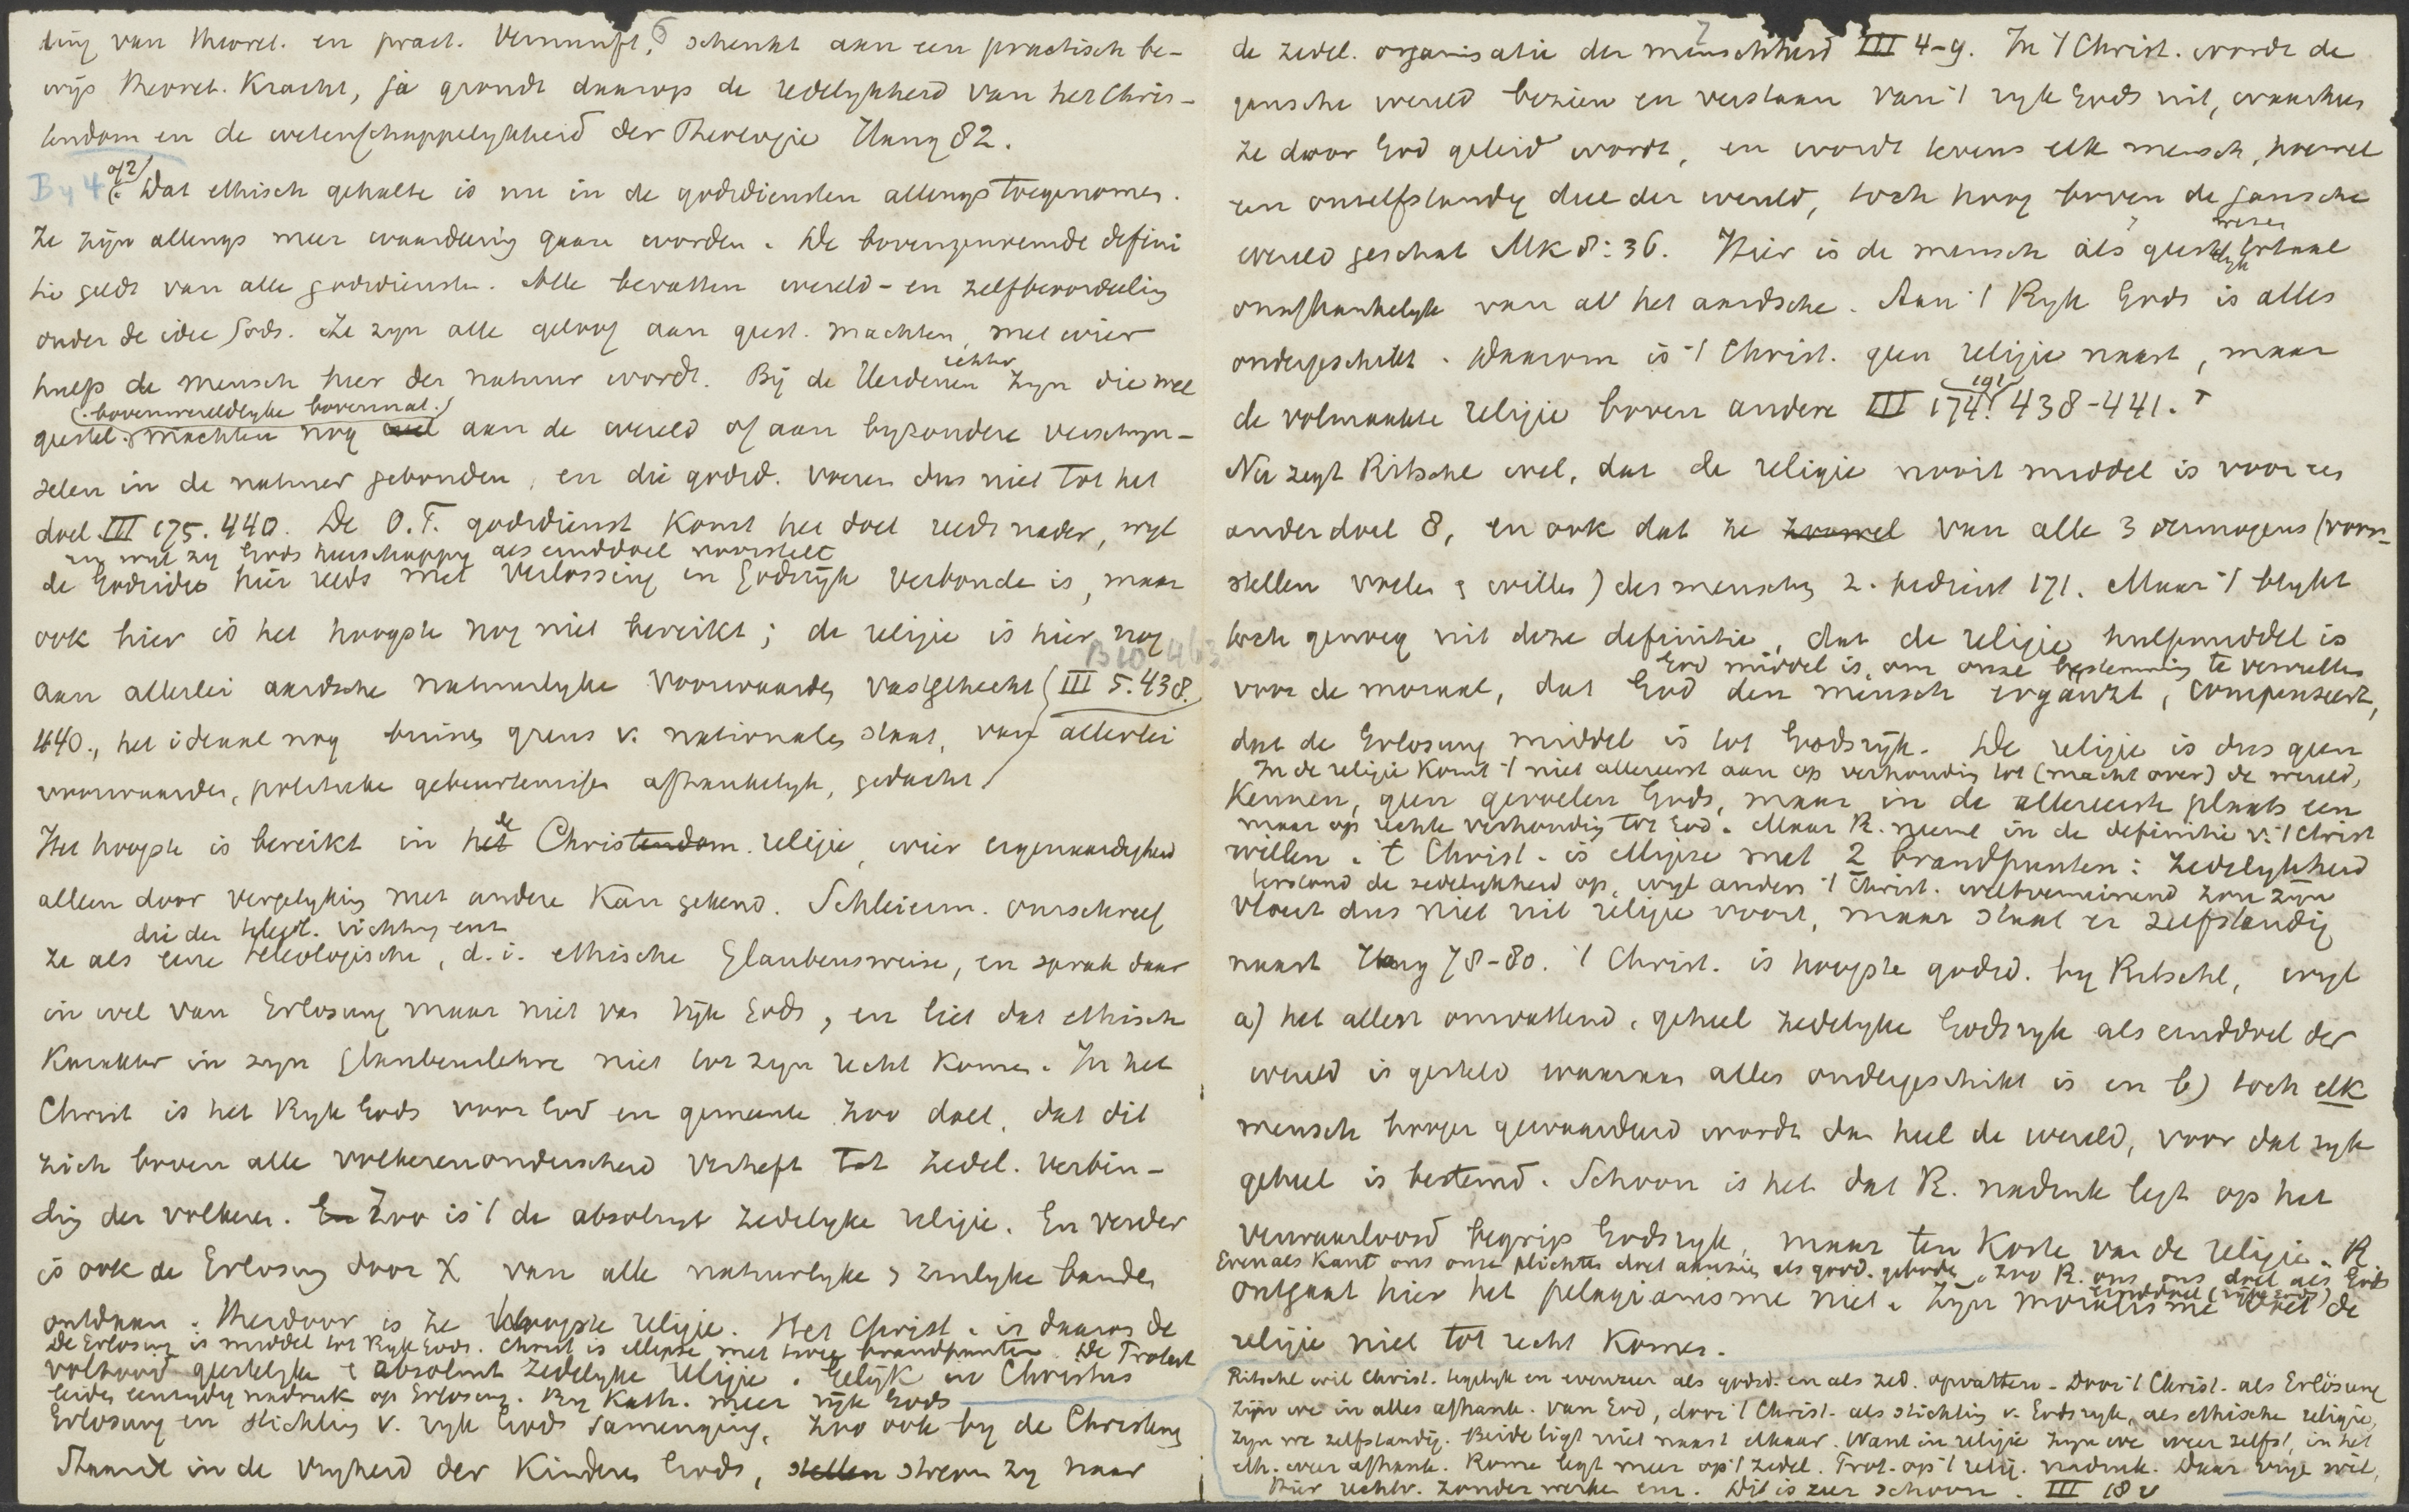 ling van theoret. en pract. Vernunft, 6 schenkt aan een practisch be-
wijs theoret. Kracht, ja grondt daarop de redelykheid van het Chris-
tendom en de wetenschappelykheid der Theologie Haug 82.
By 4 of 2) Dat ethisch gehalte is nu in de godsdiensten allengs toegenomen.
Ze zijn allengs meer waardering gaan worden. De bovengenoemde defini
tie geldt van alle godsdiensten. Alle bevatten wereld- en zelfbeoordeeling
onder de idee Gods. Ze zyn alle geloof aan geest. machten, met wier
hulp de mensch heer der natuur wordt. Bij de Heidenen echter zyn die wel
(bovenwereldlyke bovennat.)
geestel. machten nog wel aan de wereld of aan byzondere verschyn-
selen in de natuur gebonden, en die godsd. voeren dus niet tot het
doel III 175. 440. De O.T. godsdienst komt het doel reeds nader, wyl
zy wyl zy Gods heerschappy als einddoel voorstelt
de Godsidee hier reeds met Verlossing en Godsryk verbonden is, maar
ook hier is het hoogste nog niet bereikt; de religie is hier nog
B10 463
aan allerlei aardsche natuurlyke voorwaarden vastgehecht (III 5. 438.
440., het ideaal nog binnen grens v. nationalen staat, van allerlei
voorwaarden, politieke gebeurtenissen afhankelyk, gedacht)
Het hoogste is bereikt in het de Christendom religie, wier eigenaardigheid
alleen door vergelyking met andere kan gekend. Schleierm. omschreef
die der teleol. richting ent
ze als eene teleologische, d.i. ethische Glaubensweise, en sprak daar
in wel van Erlosung maar niet van ryk Gods, en liet dat ethisch
karakter in zyn Glaubenslehre niet tot zyn recht komen. In het
Christ is het Ryk Gods voor God en gemeente zoo doel, dat dit
zich boven alle volkerenonderscheid verheft tot zedel. verbin-
ding der volkeren. En Zoo is 't de absoluut zedelyke religie. En verder
is ook de Erlosung door X van alle natuurlyke & zinlyke banden
ontdaan. Hierdoor is ze hoogste religie. Het Christ. is daarom de
De Erlosung is middel tot Ryk Gods. Christ is ellipse met twee brandpunten. De Protest
voltooid geestelyke & absoluut zedelyke religie. Gelijk in Christus
leiden eenzydig nadruk op Erlosung. By Kath. meer ryk Gods
Erlosung en stichting v. ryk Gods samengingen, zoo ook by de Christen
Staande in de vryheid der Kinderen Gods, stellen streven zy naar
7
de zedel. organisatie der menschheid III 4-9. In 't Christ. wordt de
gansche wereld bezien en verstaan van 't ryk Gods uit, waarheen
ze door God geleid wordt, en wordt tevens elk mensch, hoewel
een onzelfstandig deel der wereld, toch hoog boven de gansche
wereld geschat Mk 8:36. Hier is de mensch als geestelyk wezen totaal
onafhankelyk van al het aardsche. Aan 't Ryk Gods is alles
ondergeschikt. Daarom is 't Christ. geen religie naast, maar
de volmaakte religie boven andere III 174. 191 438-441.
Nu zegt Ritschl wel, dat de religie nooit middel is voor een
ander doel 8, en ook dat ze zoowel van alle 3 vermogens (voor-
stellen voelen & willen) des menschen z. bedient 171. Maar 't blykt
toch genoeg uit deze definitie, dat de religie hulpmiddel is
God middel is, om onze bestemming te vervullen
voor de moraal, dat God den mensch ergänzt, compenseert,
dat de Erlosung middel is tot Godsryk. De religie is dus geen
In de religie komt 't niet allereerst aan op verhouding tot (macht over) de wereld,
kennen, geen gevoelen Gods, maar in de allereerste plaats een
maar op rechte verhouding tot God. Maar R. neemt in de definitie v. 't Christ
willen. 't Christ. is ellipse met 2 brandpunten: zedelykheid
terstond de zedelykheid op, wyl anders 't Christ. weltverneinend zou zyn
vloeit dus niet uit religie voort, maar staat er zelfstandig
naast Haug 78-80. 't Christ. is hoogste godsd. by Ritschl, wyl
a) het allen omvattend, geheel zedelyke Godsryk als einddoel der
wereld is gesteld waaraan alles ondergeschikt is en b) toch elk
mensch hooger gewaardeerd wordt dan heel de wereld, voor dat ryk
geheel is bestemd. Schoon is het dat R. nadruk legt op het
verwaarloosd begrip Godsryk, maar ten koste van de religie. R.
Evenals Kant ons onze plichten doet aanzien als godd. geboden, zoo R. ons ons doel als Gods
einddoel (ryk Gods)
ontgaat hier het pelagianisme niet. Zyn moralisme doet de
religie niet tot recht komen.
Ritschl wil Christ. tegelyk en evenzeer als godsd. en als zed. opvatten. Door 't Christ. als Erlösung
zyn we in alles afhank. van God, door 't Christ. als stichting v. Godsryk, als ethische religie,
zyn we zelfstandig. Beide ligt niet naast elkaar. Want in religie zyn we weer zelfst, in het
eth. weer afhank. Rome legt meer op 't zedel. Prot. op 't relig. nadruk. Daar vrye wil,
hier rechtv. zonder werken enz. Dit is zeer schoon. III 18v